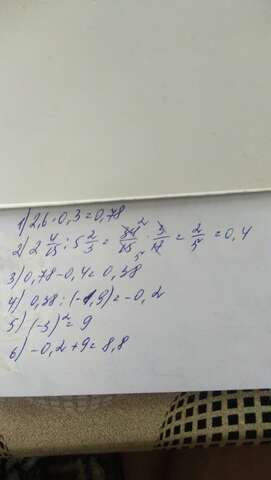 1) 2,6 · 0,3 = 0,78
2) 2 4/15 : 5 2/3 = 34/15 · 3/17 = 2/5 = 0,4
3) 0,78 - 0,4 = 0,38
4) 0,38 : (-1,9) = -0,2
5) (-3)² = 9
6) -0,2 + 9 = 8,8